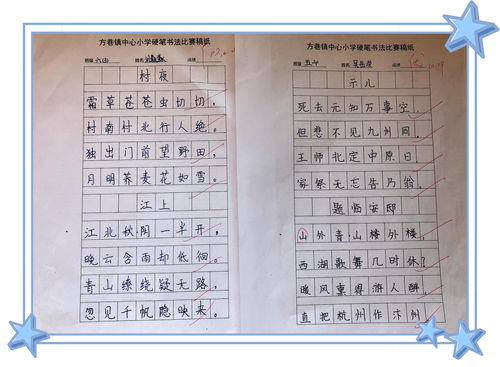 方巷镇中心小学硬笔书法比赛稿纸
班级 姓名 成绩
村夜
霜草苍苍虫切切,
村南村北行人绝。
独出门前望野田,
月明荞麦花如雪。
江上
江北秋阴一半开,
晚云含雨却低徊。
青山缭绕疑无路,
忽见千帆隐映来。
方巷镇中心小学硬笔书法比赛稿纸
班级 姓名 成绩
示儿
死去元知万事空,
但悲不见九州同。
王师北定中原日
家祭无忘告乃翁。
题临安邸
山外青山楼外楼,
西湖歌舞几时休?
暖风熏得游人醉,
直把杭州作汴州。